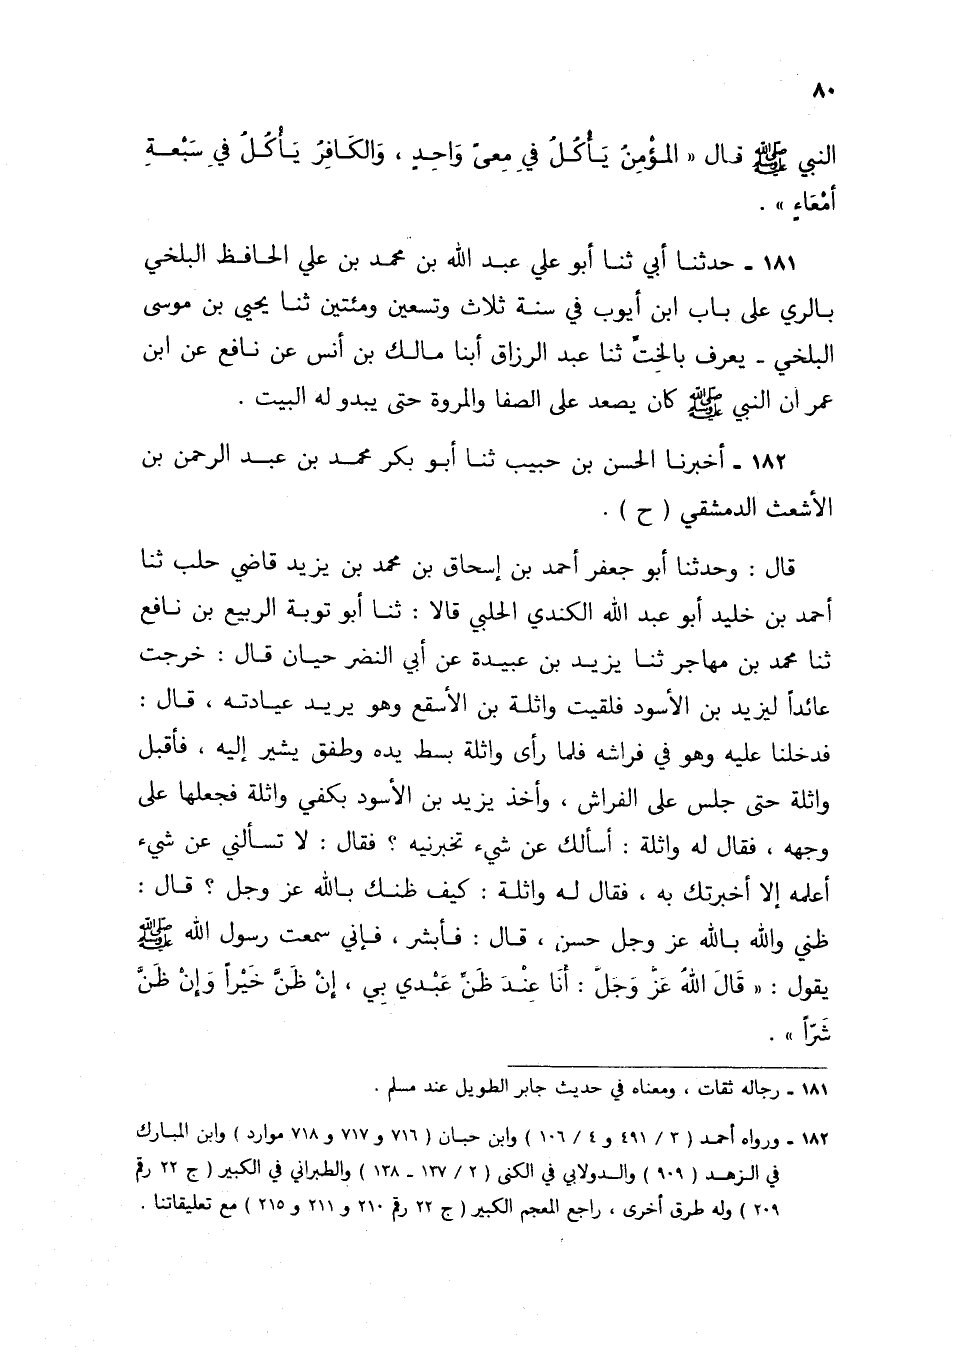 ٨٠
النبي ﷺ قال « المُؤْمِنُ يَأْكُلُ فِي مِعىً وَاحِدٍ ، وَالكَافِرُ يَأْكُلُ فِي سَبْعَةِ
أَمْعَاءٍ » .
١٨١ ـ حدثنا أبي ثنا أبو علي عبد الله بن محمد بن علي الحافظ البلخي
بالري على باب ابن أيوب في سنة ثلاث وتسعين ومئتين ثنا يحيى بن موسى
البلخي ـ يعرف بالختّ ثنا عبد الرزاق أبنا مالك بن أنس عن نافع عن ابن
عمر أن النبي ﷺ كان يصعد على الصفا والمروة حتى يبدو له البيت .
١٨٢ ـ أخبرنا الحسن بن حبيب ثنا أبو بكر محمد بن عبد الرحمن بن
الأشعث الدمشقي ( ح ) .
قال : وحدثنا أبو جعفر أحمد بن إسحاق بن محمد بن يزيد قاضي حلب ثنا
أحمد بن خليد أبو عبد الله الكندي الحلبي قالا : ثنا أبو توبة الربيع بن نافع
ثنا محمد بن مهاجر ثنا يزيد بن عبيدة عن أبي النضر حيان قال : خرجت
عائداً ليزيد بن الأسود فلقيت واثلة بن الأسقع وهو يريد عيادته ، قال :
فدخلنا عليه وهو في فراشه فلما رأى واثلة بسط يده وطفق يشير إليه ، فأقبل
واثلة حتى جلس على الفراش ، وأخذ يزيد بن الأسود بكفي واثلة فجعلها على
وجهه ، فقال له واثلة : أسألك عن شيء تخبرنيه ؟ فقال : لا تسألني عن شيء
أعلمه إلا أخبرتك به ، فقال له واثلة : كيف ظنك بالله عز وجل ؟ قال :
ظني والله بالله عز وجل حسن ، قال : فأبشر ، فإني سمعت رسول الله ﷺ
يقول : « قَالَ اللهُ عَزَّ وَجَلَّ : أَنَا عِنْدَ ظَنِّ عَبْدِي بِي ، إِنْ ظَنَّ خَيْراً وَإِنْ ظَنَّ
شَرّاً » .
١٨١ ـ رجاله ثقات ، ومعناه في حديث جابر الطويل عند مسلم .
١٨٢ ـ ورواه أحمد ( ٣ / ٤٩١ و ٤ / ١٠٦ ) وابن حبان ( ٧١٦ و ٧١٧ و ٧١٨ موارد ) وابن المبارك
في الزهد ( ٩٠٩ ) والدولابي في الكنى ( ٢ / ١٣٧ ـ ١٣٨ ) والطبراني في الكبير ( ج ٢٢ رقم
٢٠٩ ) وله طرق أخرى ، راجع المعجم الكبير ( ج ٢٢ رقم ٢١٠ و ٢١١ و ٢١٥ ) مع تعليقاتنا .